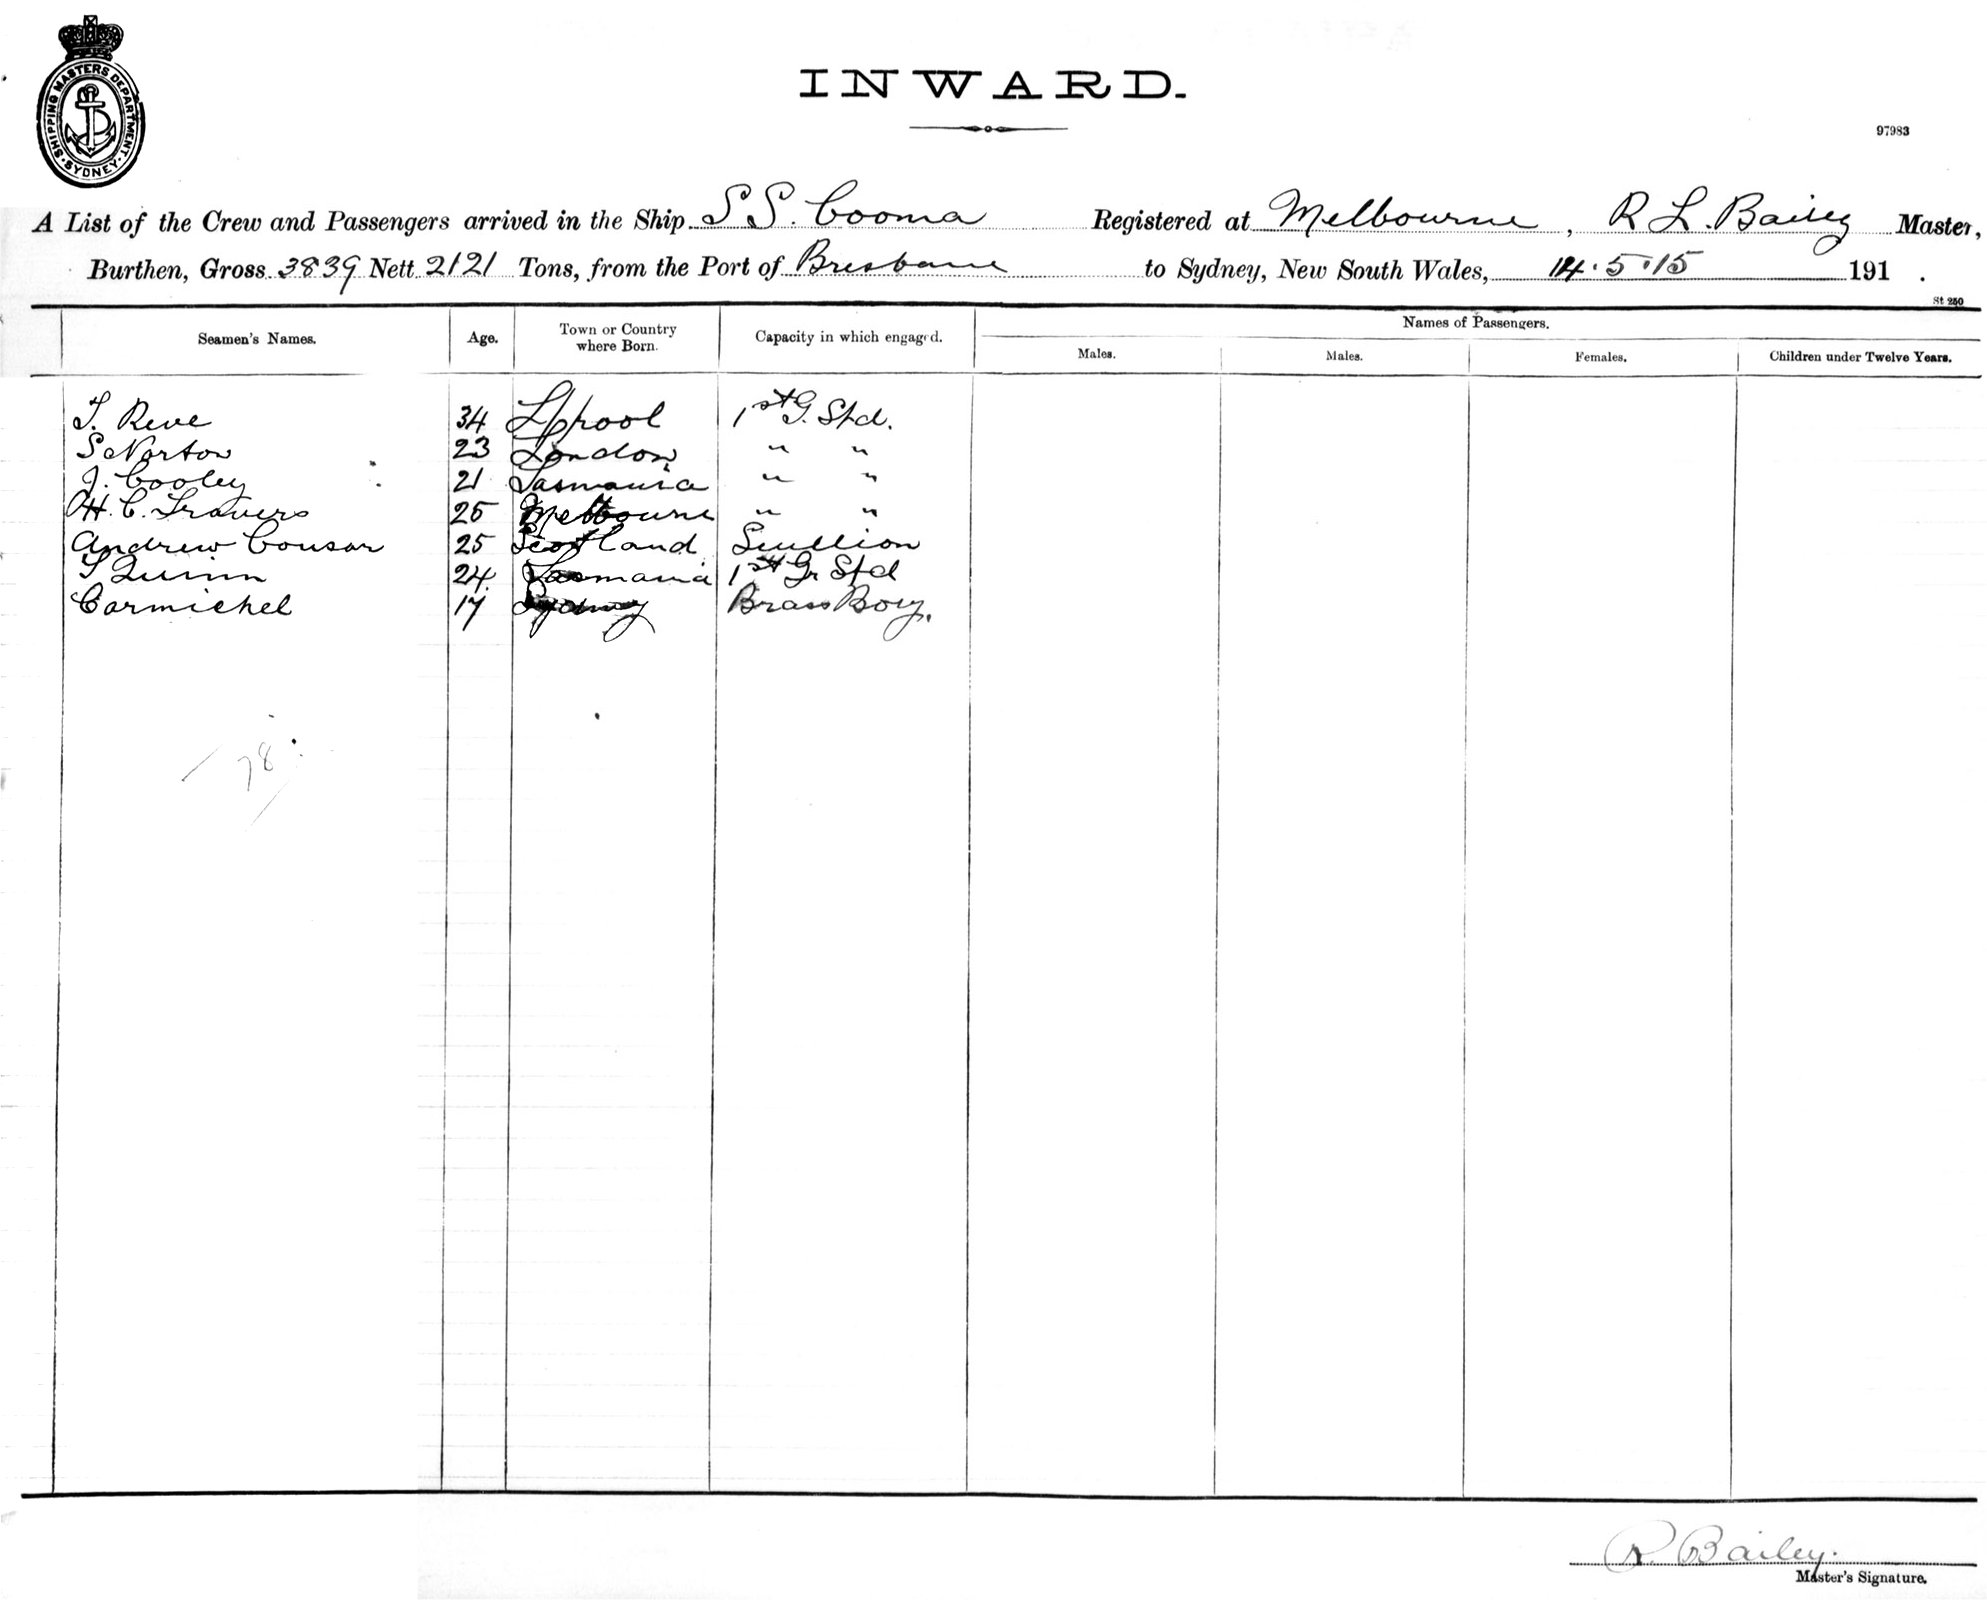 SHIPPING MASTERS DEPARTMENT · SYDNEY ·
INWARD.
97983
A List of the Crew and Passengers arrived in the Ship S S. Cooma Registered at Melbourne, R L. Bailey Master,
Burthen, Gross 3839 Nett 2121 Tons, from the Port of Brisbane to Sydney, New South Wales, 14.5.15 191 .
St 250
Seamen's Names. Age. Town or Country where Born. Capacity in which engaged. Names of Passengers.
Males. Males. Females. Children under Twelve Years.
T. Reve 34 L/pool 1st G. Std.
S Norton 23 London " "
J. Cooley 21 Tasmania " "
H. C. Travers 25 Melbourne " "
Andrew Cousar 25 Scotland Scullion
T Quinn 24 Tasmania 1st Gr Std
Carmichel 17 Sydney Brass Boy.
78
R. Bailey.
Master's Signature.